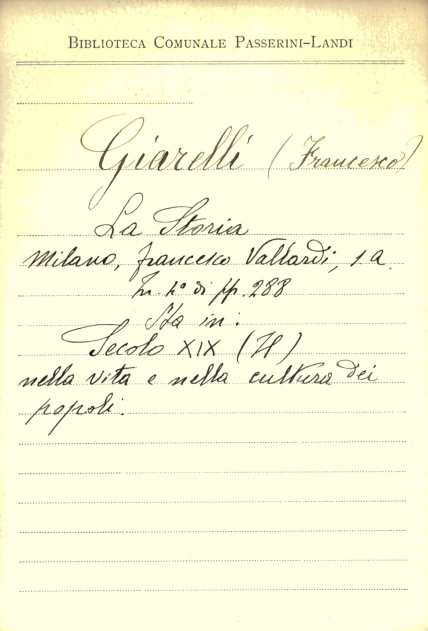 BIBLIOTECA COMUNALE PASSERINI-LANDI
Giarelli (Francesco)
La Storia
Milano, Francesco Vallardi, s.a.
In 4° di pp. 288
Sta in:
Secolo XIX (Il)
nella vita e nella cultura dei
popoli.